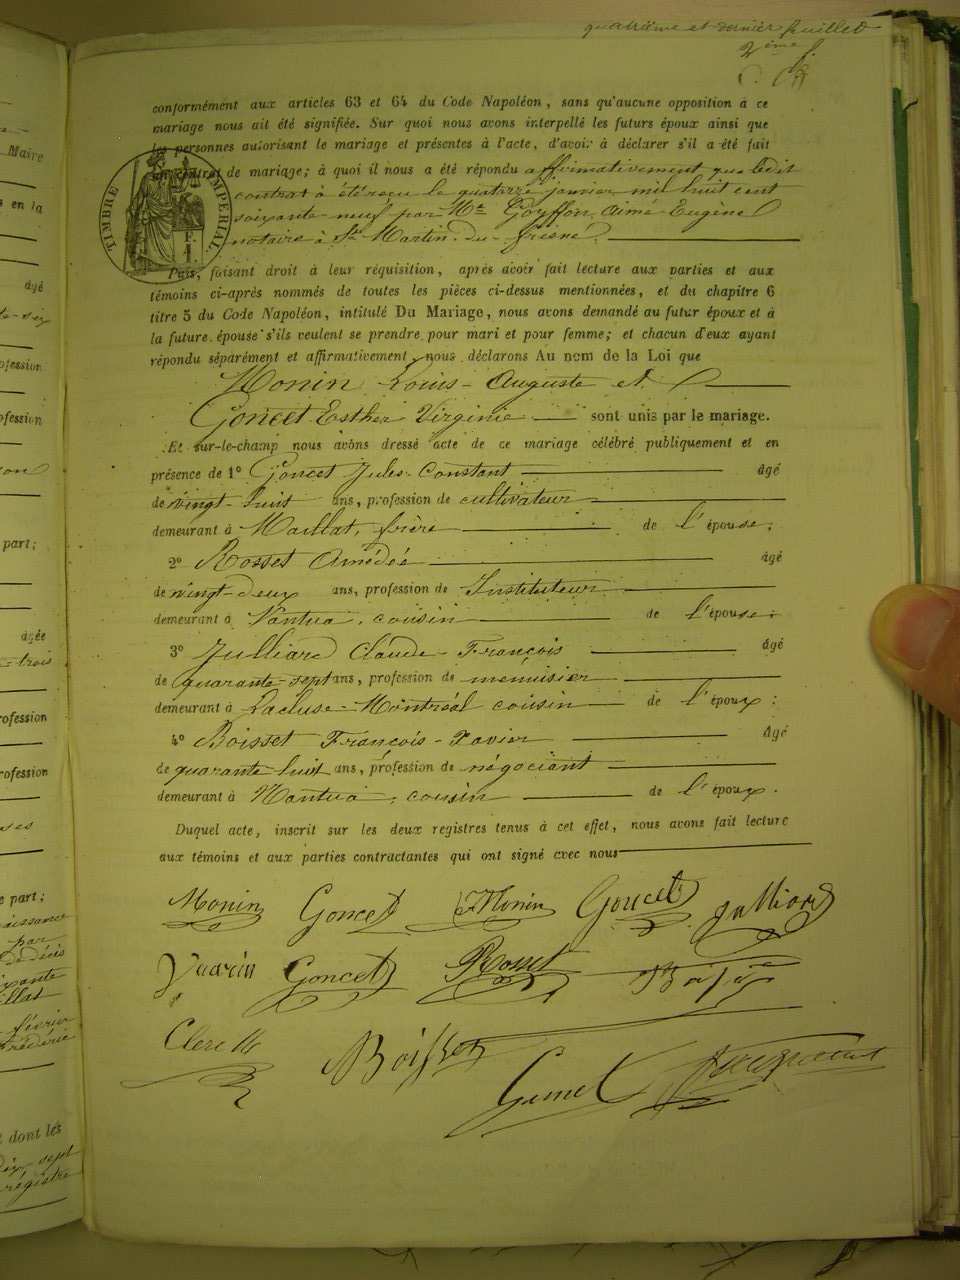 quatrième et dernier feuillet
2ème f.
conformément aux articles 63 et 64 du Code Napoléon, sans qu'aucune opposition à ce
mariage nous ait été signifiée. Sur quoi nous avons interpellé les futurs époux ainsi que
les personnes autorisant le mariage et présentes à l'acte, d'avoir à déclarer s'il a été fait
un contrat de mariage; à quoi il nous a été répondu affirmativement que ledit
contrat à été reçu le quatre janvier mil huit cent
soixante-neuf par Me Goyffon, Aimé-Eugène
notaire à St-Martin-du-fresne.
TIMBRE IMPÉRIAL
F.
1
Puis, faisant droit à leur réquisition, après avoir fait lecture aux parties et aux
témoins ci-après nommés de toutes les pièces ci-dessus mentionnées, et du chapitre 6
titre 5 du Code Napoléon, intitulé Du Mariage, nous avons demandé au futur époux et à
la future épouse s'ils veulent se prendre pour mari et pour femme; et chacun d'eux ayant
répondu séparément et affirmativement, nous déclarons Au nom de la Loi que
Monin Louis-Auguste et
Goncet Esther Virginie sont unis par le mariage.
Et sur-le-champ nous avons dressé acte de ce mariage célébré publiquement et en
présence de 1° Goncet Jules-Constant âgé
de vingt-huit ans, profession de cultivateur
demeurant à Maillat, frère de l'épouse;
2° Rosset Amédée âgé
de vingt-deux ans, profession de Instituteur
demeurant à Nantua, cousin de l'épouse;
3° Julliard Claude-François âgé
de quarante-sept ans, profession de menuisier
demeurant à Lacluse-Montréal cousin de l'époux;
4° Boisset François-Xavier âgé
de quarante huit ans, profession de négociant
demeurant à Nantua, cousin de l'époux.
Duquel acte, inscrit sur les deux registres tenus à cet effet, nous avons fait lecture
aux témoins et aux parties contractantes qui ont signé avec nous
Monin Goncet Monin Goncet Julliard
Goncet Rosset
Clerc
Boisset
Maire
s en la
âgé
profession
profession
part;
âgée
trois
profession
profession
part;
naissance
par
décès
février
dont les
dix sept
registre